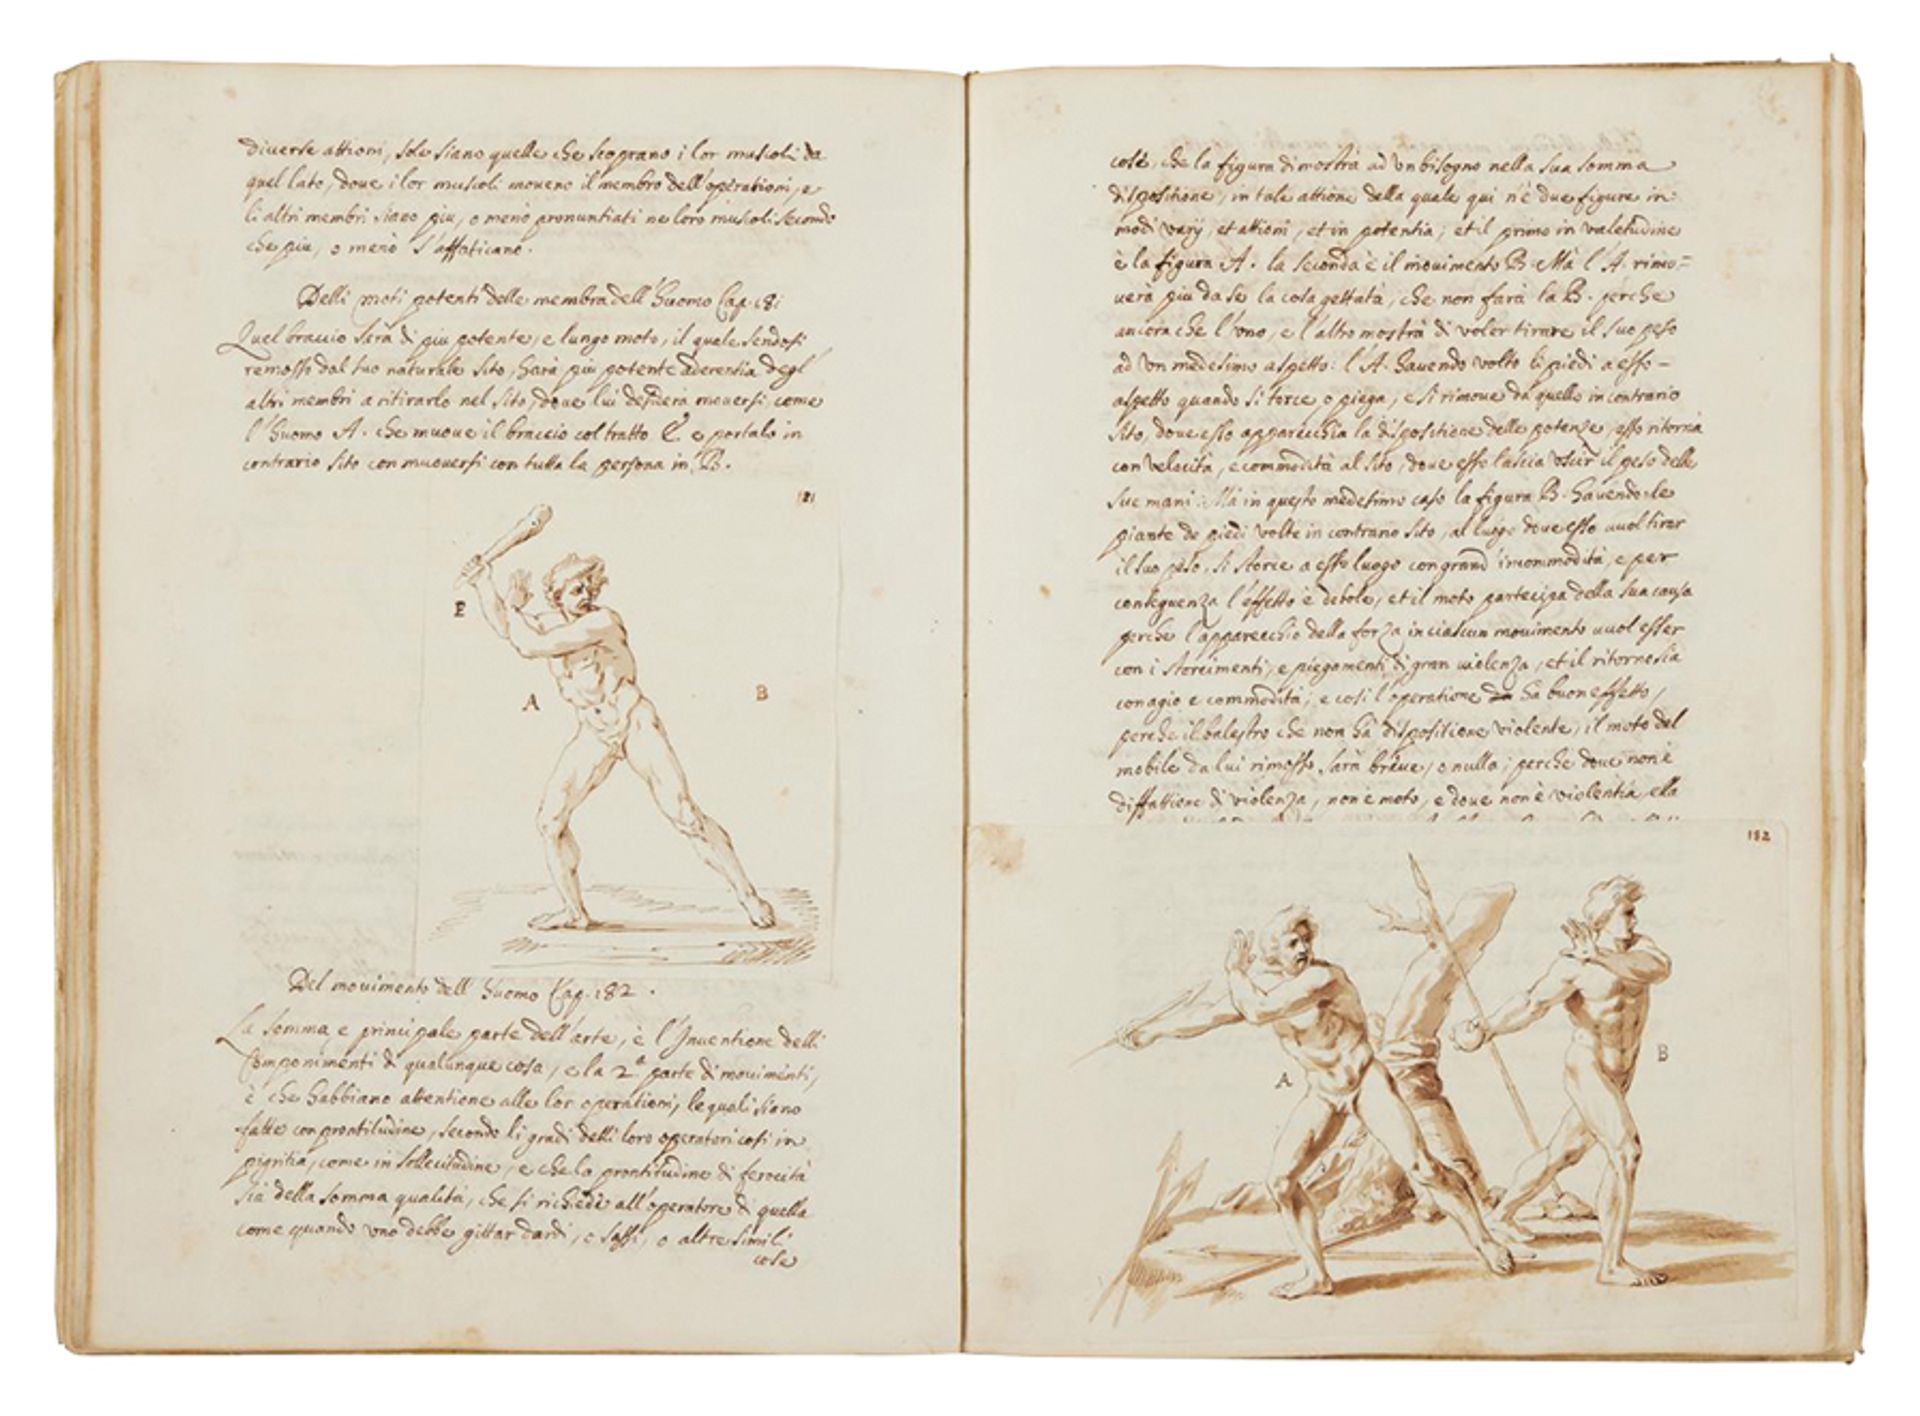 diuerse attioni, solo siano quelle che scoprano i lor muscoli da
quel lato, doue i lor muscoli moueno il membro dell'operationi, e
li altri membri siano piu, o meno pronuntiati ne loro muscoli secondo
che piu, o meno s'affaticano.
Delli moti potenti delle membra dell'Huomo Cap. 181
Quel braccio serà di piu potente, e lungo moto, il quale sendosi
remosso dal suo naturale sito, harà piu potente aderentia degl'
altri membri a ritirarlo nel sito, doue lui desidera mouersi, come
l'huomo A. che muoue il braccio col tratto E. e portalo in
contrario sito con muouersi con tutta la persona in B.
181
E
A
B
Del mouimento dell'Huomo Cap. 182.
La somma, e principale parte dell'arte, è l'Inuentione delli
Componimenti di qualunque cosa, e la 2.ª parte di mouimenti,
è che habbiano attentione alle lor operationi, le quali siano
fatte con prontitudine, secondo li gradi delli loro operatori cosi in
pigritia, come in sollecitudine, e che la prontitudine di ferocità
sia della somma qualità, che si richiede all'operatore di quella
come quando uno debbe gittar dardi, o sassi, o altre simili
cose
cose, che la figura dimostrà ad un bisogno nella sua somma
dispositione, in tale attione della quale qui n'è due figure in
modi varij, et attioni, et in potentia; et il primo in valetudine
è la figura A. la seconda è il mouimento B. Mà l'A. rimo=
uerà piu da se la cosa gettata, che non farà la B. perche
ancora che l'uno, e l'altro mostrà di voler tirare il suo peso
ad un medesimo aspetto: l'A. hauendo volto li piedi a esso
aspetto quando si torce, o piega, e si rimoue da quello in contrario
sito, doue esso apparecchia la dispositione delle potenze, esso ritorna
con velocità, e commodità al sito, doue esso lascia uscir il peso delle
sue mani. Mà in questo medesimo caso la figura B. hauendo le
piante de piedi volte in contrario sito, al luogo doue esso uuol tirar
il suo peso, si storce a esso luogo con grand'incommodità, e per
conseguenza l'effetto è debole, et il moto partecipa della sua causa
perche l'apparecchio della forza in ciascun mouimento uuol esser
con i storcimenti, e piegamenti di gran uiolenza, et il ritorno sia
con agio e commodità; e cosi l'operatione ha buon effetto,
perche il balestro che non hà dispositione violente, il moto del
mobile da lui rimosso sarà breue, o nulla; perche doue non è
disfattione di violenza, non è moto, e doue non è violentia, ella
182
A
B